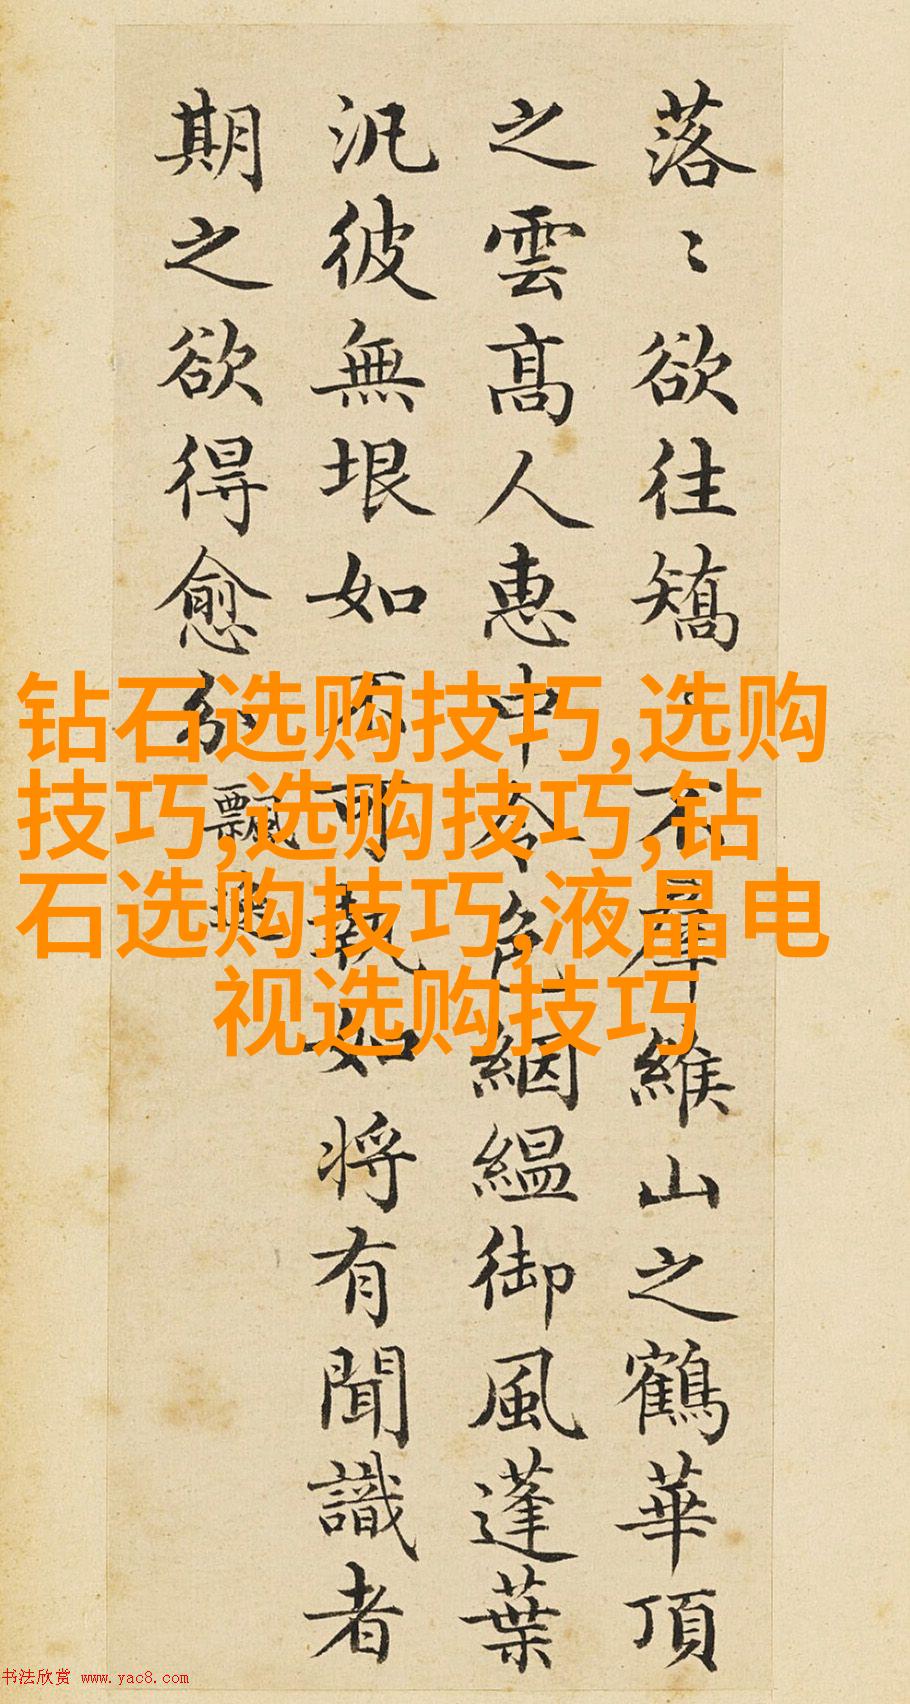 落〻欲往矯〻不群緱山之鶴華頂
之雲高人惠中令色絪緼御風蓬葉
汎彼無垠如不可執如将有聞識者
期之欲得愈分
飄逸
钻石选购技巧,选购
技巧,选购技巧,钻
石选购技巧,液晶电
视选购技巧
书法欣赏 www.yac8.com